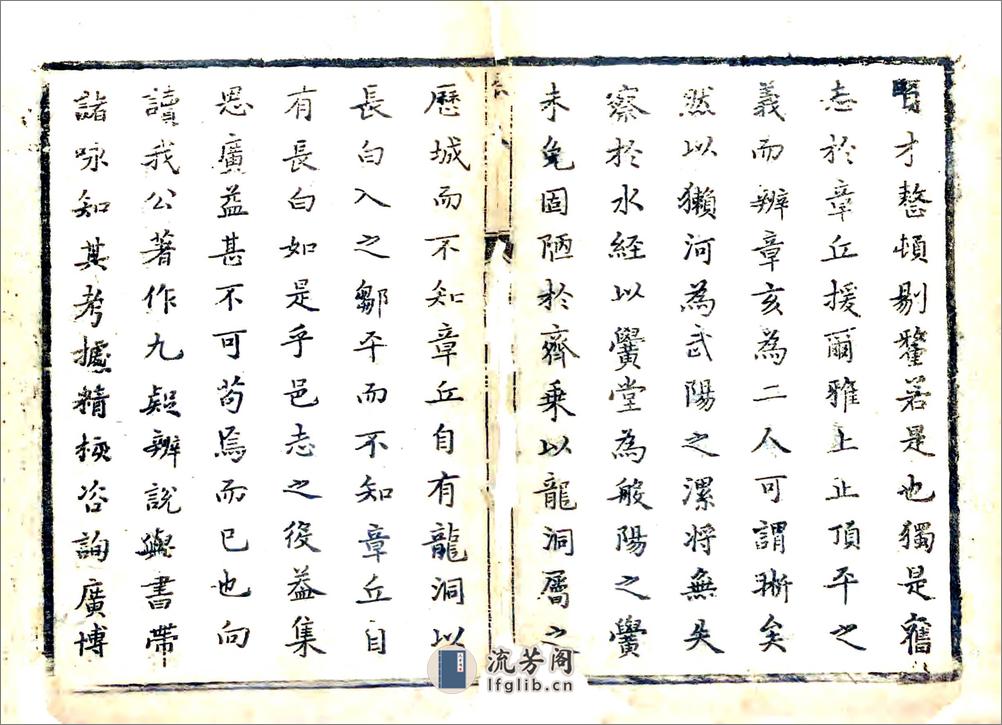 賢才整頓剔釐若是也獨是舊
志於章丘援爾雅上止頂平之
義而辨章亥為二人可謂晰矣
然以獺河為武陽之漯將無失
察於水經以黌堂為般陽之黌
未免固陋於齊乗以龍洞屬之
歷城而不知章丘自有龍洞以
長白入之鄒平而不知章丘自
有長白如是乎邑志之役益集
思廣益甚不可苟焉而已也向
讀我公著作九疑辨說與書帶
諸咏知其考據精核咨詢廣博
流芳阁
lfglib.cn